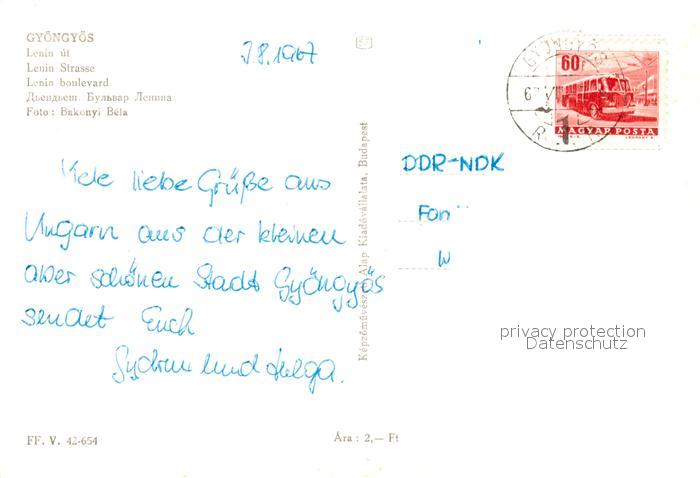 GYÖNGYÖS
Lenin út
Lenin Strasse
Lenin boulevard
Дьендьеш. Бульвар Ленина
Foto: Bakonyi Béla
7.8.1967
GYÖNGYÖS
60f
MAGYAR POSTA
Viele liebe Grüße aus
Ungarn aus der kleinen
aber schönen Stadt Gyöngyös
sendet Euch
und Helga.
DDR-NDK
Fam
W
Képzőművészeti Alap Kiadóvállalata, Budapest
privacy protection
Datenschutz
FF. V. 42-654
Ára: 2,— Ft